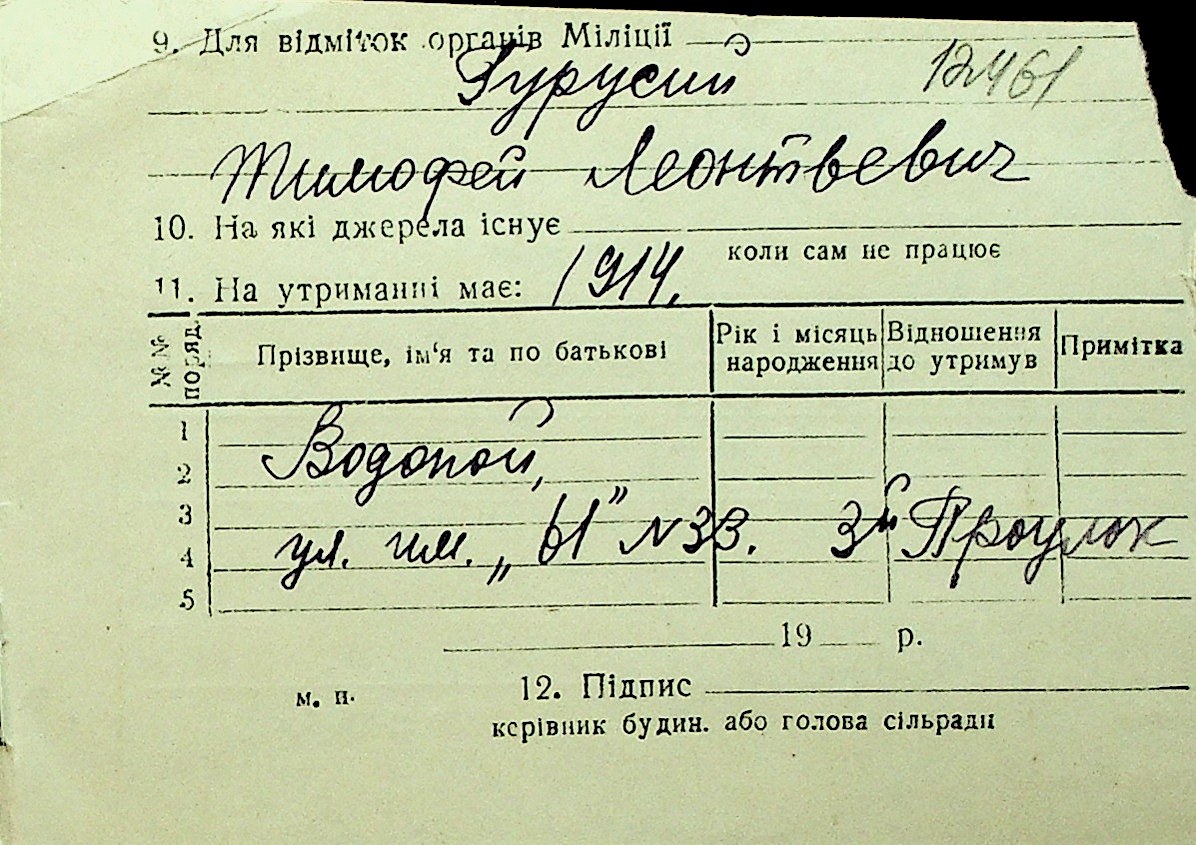 9. Для відміток органів Міліції
Гурусий 12461
Тимофей Леонтьевич
10. На які джерела існує
коли сам не працює
11. На утриманні має: 1914.
№№ поряд. Прізвище, ім'я та по батькові Рік і місяць народження Відношення до утримув Примітка
1
2 Водопой,
3
4 ул. им. „61” N33. 3й Проулок
5
19 р.
м. п. 12. Підпис
керівник будин. або голова сільради